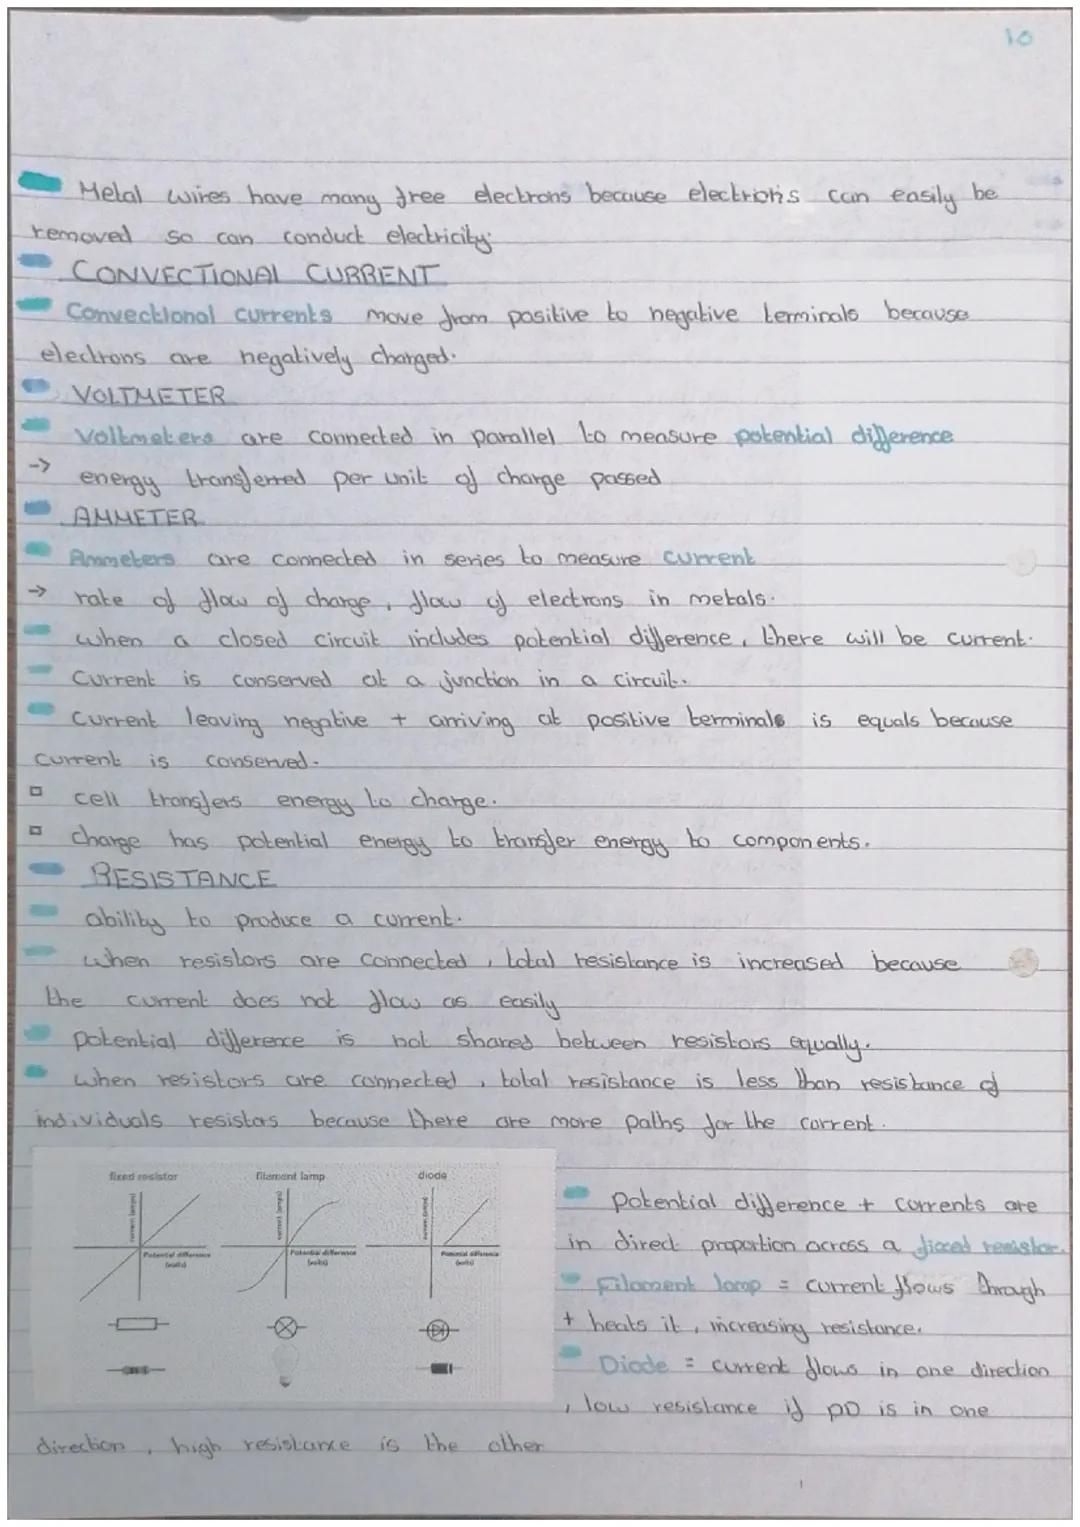 10
Metal wires have many free electrons because electrons can easily be
removed so can conduct electricity.
CONVECTIONAL CURRENT
Convectional currents move from positive to negative terminals because
electrons are negatively charged.
VOLTMETER
Voltmeters are connected in parallel to measure potential difference
-> energy transferred per unit of charge passed
AMMETER
Ammeters are connected in series to measure current
-> rate of flow of charge, flow of electrons in metals.
when a closed circuit includes potential difference, there will be current.
Current is conserved at a junction in a circuit.
Current leaving negative + arriving at positive terminals is equals because
current is conserved.
cell transfers energy to charge.
charge has potential energy to transfer energy to components.
RESISTANCE
ability to produce a current.
when resistors are connected, total resistance is increased because
the current does not flow as easily
potential difference is not shared between resistors equally.
when resistors are connected, total resistance is less than resistance of
individuals resistors because there are more paths for the current.
fixed resistor filament lamp diode
current (amps) current (amps) current (amps)
Potential difference (volts) Potential difference (volts) Potential difference (volts)
potential difference + currents are
in direct proportion across a fixed resistor.
Filament lamp = current flows through
+ heats it, increasing resistance.
Diode = current flows in one direction
, low resistance if pD is in one
direction, high resistance is the other